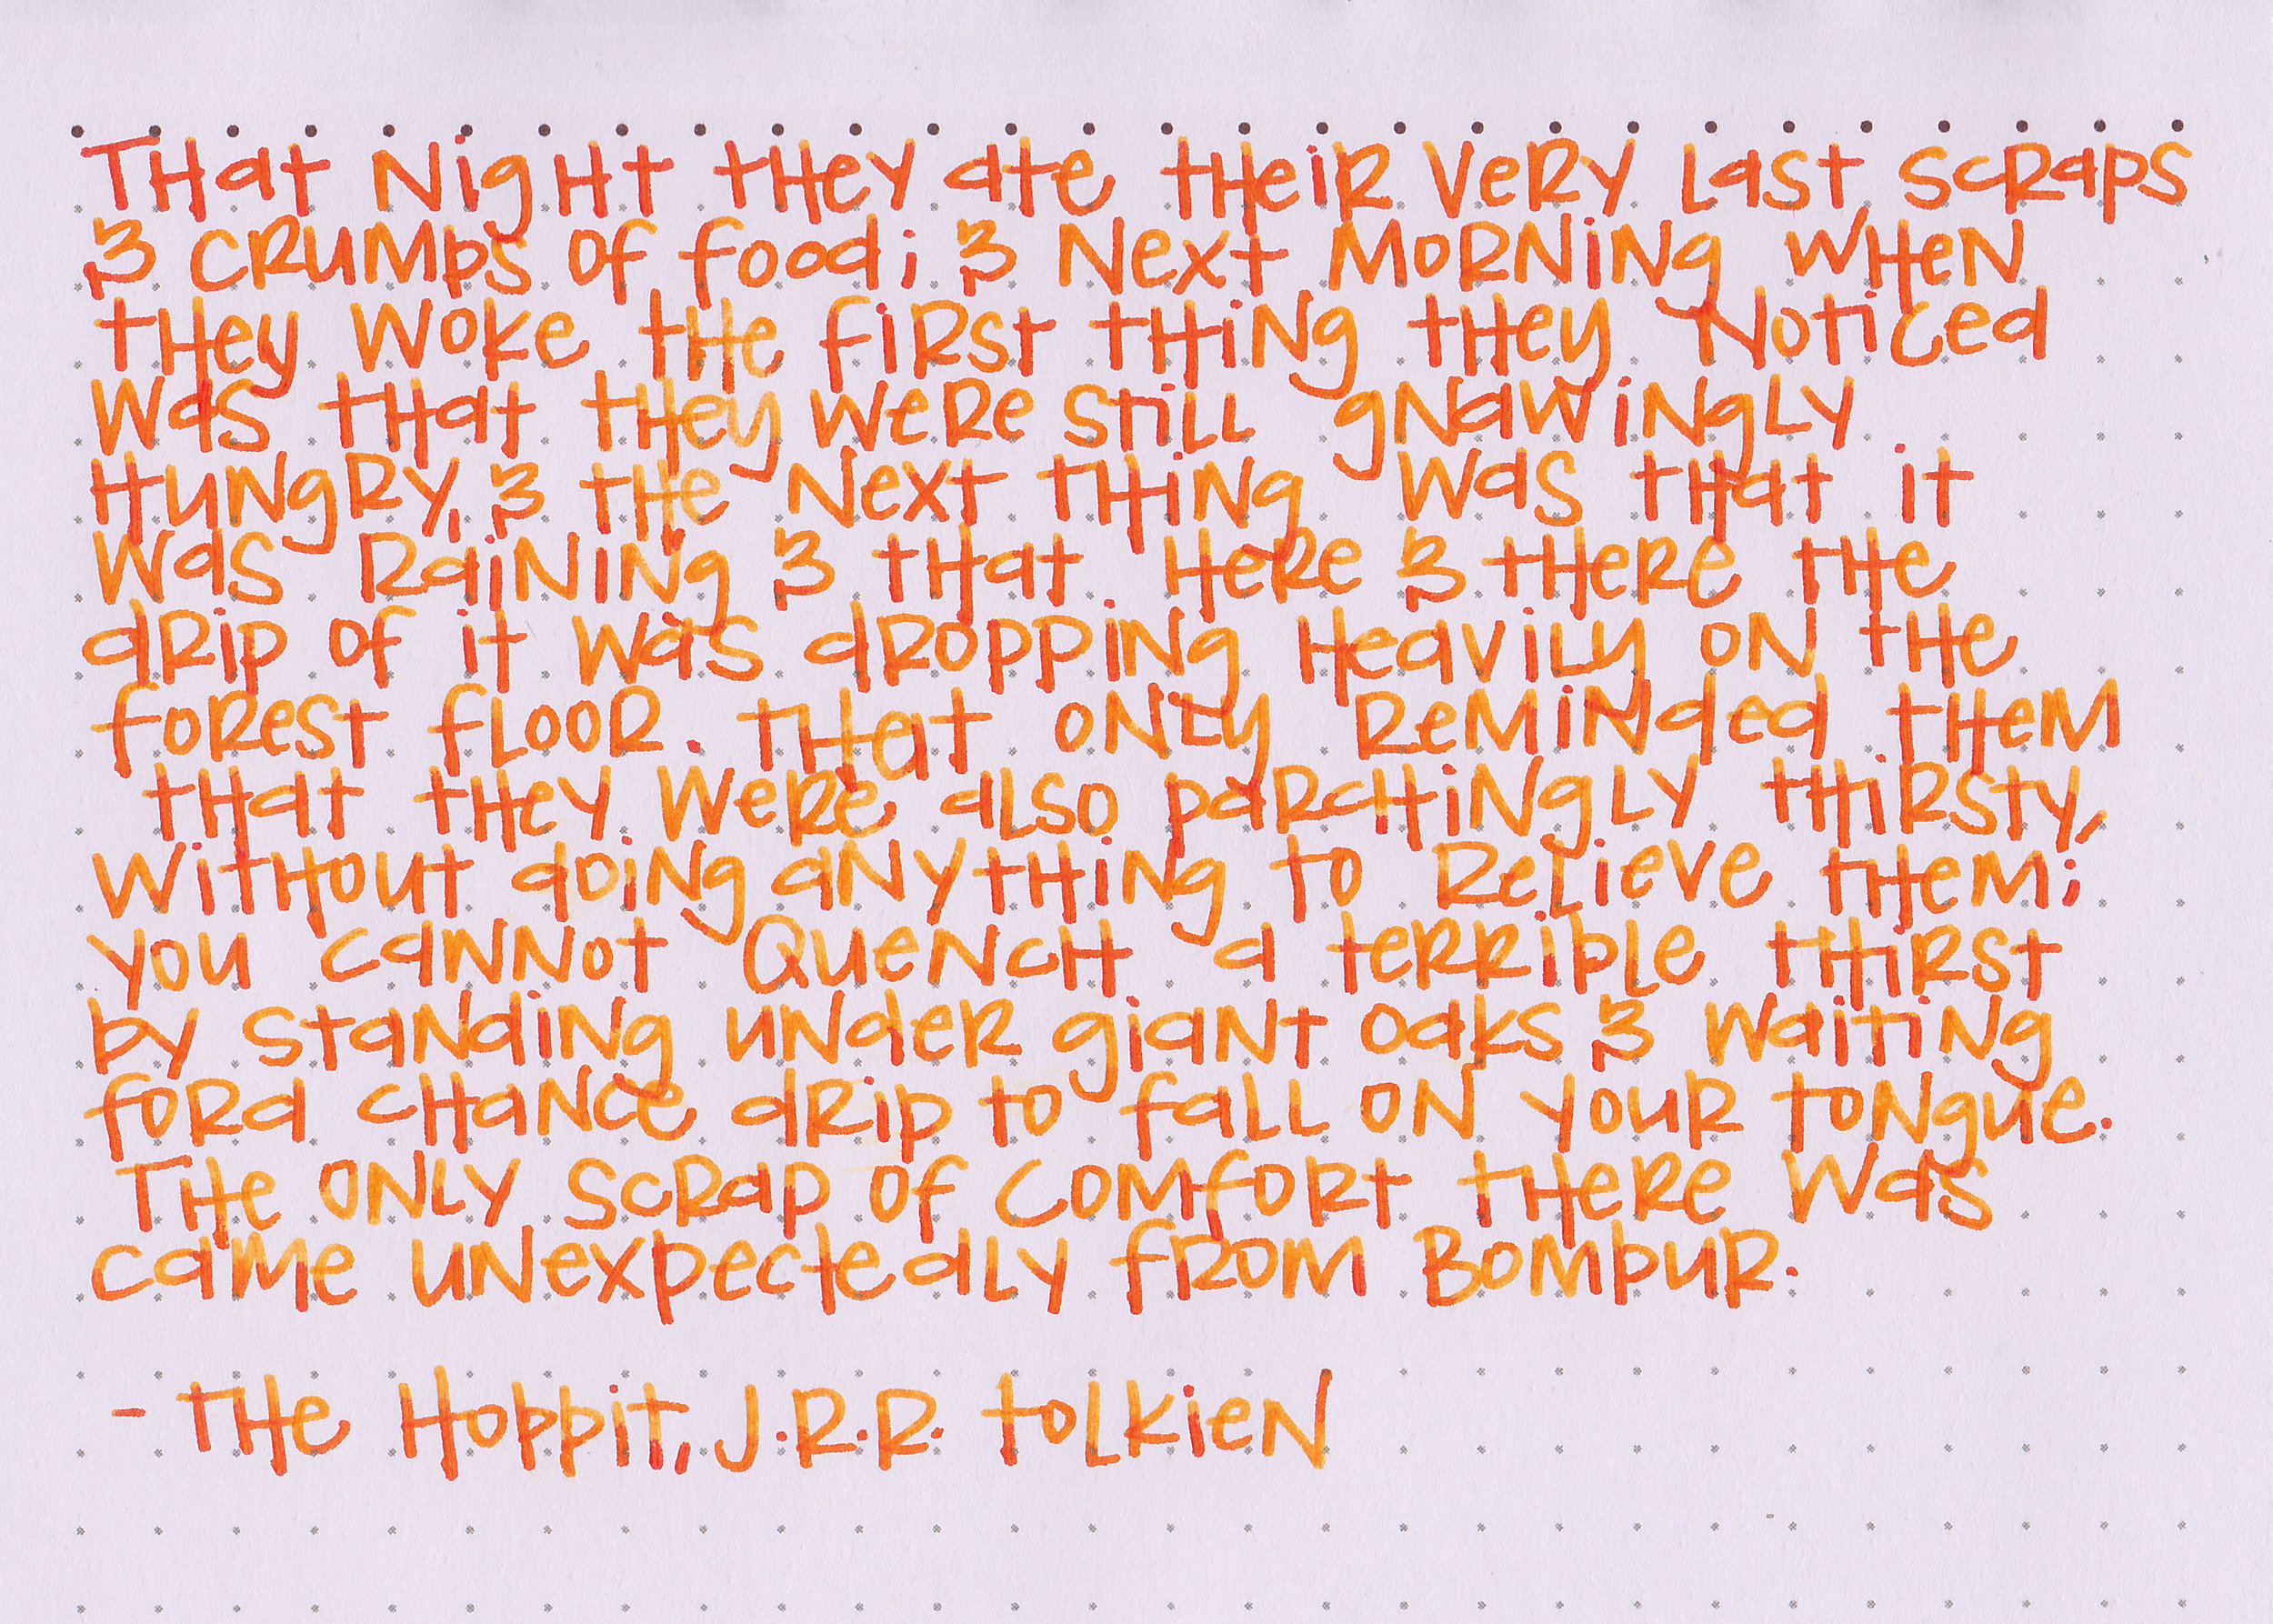 That night they ate their very last scraps
& crumbs of food; & next morning when
they woke the first thing they noticed
was that they were still gnawingly
hungry, & the next thing was that it
was raining & that here & there the
drip of it was dropping heavily on the
forest floor. That only reminded them
that they were also parchingly thirsty,
without doing anything to relieve them;
you cannot quench a terrible thirst
by standing under giant oaks & waiting
for a chance drip to fall on your tongue.
The only scrap of comfort there was
came unexpectedly from Bombur.
- The Hobbit, J.R.R. Tolkien